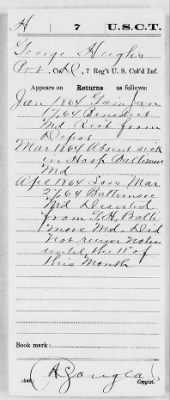 H 7 U.S.C.T.
George Hughes
Pvt., Co. , 7 Reg't U. S. Col'd Inf.
Appears on Returns as follows:
Jan 1864 Gain Jan
17, 64 Benedict
Md Rect from
Depot
Mar 1864 Absent sick
in Hosp Baltimore
Md
Apr 1864 Loss Mar
27, 64 Baltimore
Md Deserted
from G.H. Balti
more Md. Did
not receive notice
until the 11" of
this Month
Book mark:
(546) Copyist.